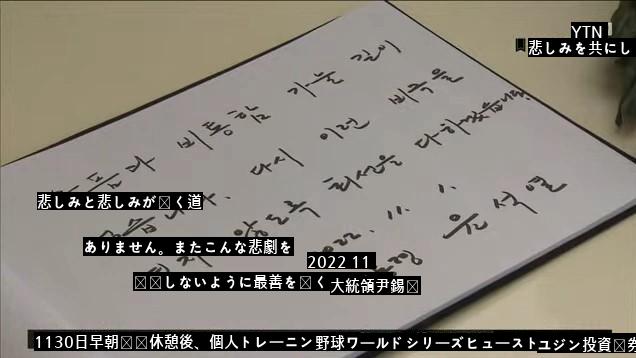 YTN
悲しみを共にし
비통함 가눌 길이
다시 이런 비극을
않도록 최선을 다하겠습니다.
2022. 11. 1.
윤석열
悲しみと悲しみが く道
ありません。またこんな悲劇を
しないように最善を く
2022 11
大統領尹錫
1130日早朝 休憩後、個人トレーニン野球ワールドシリーズヒューストユジン投資 券